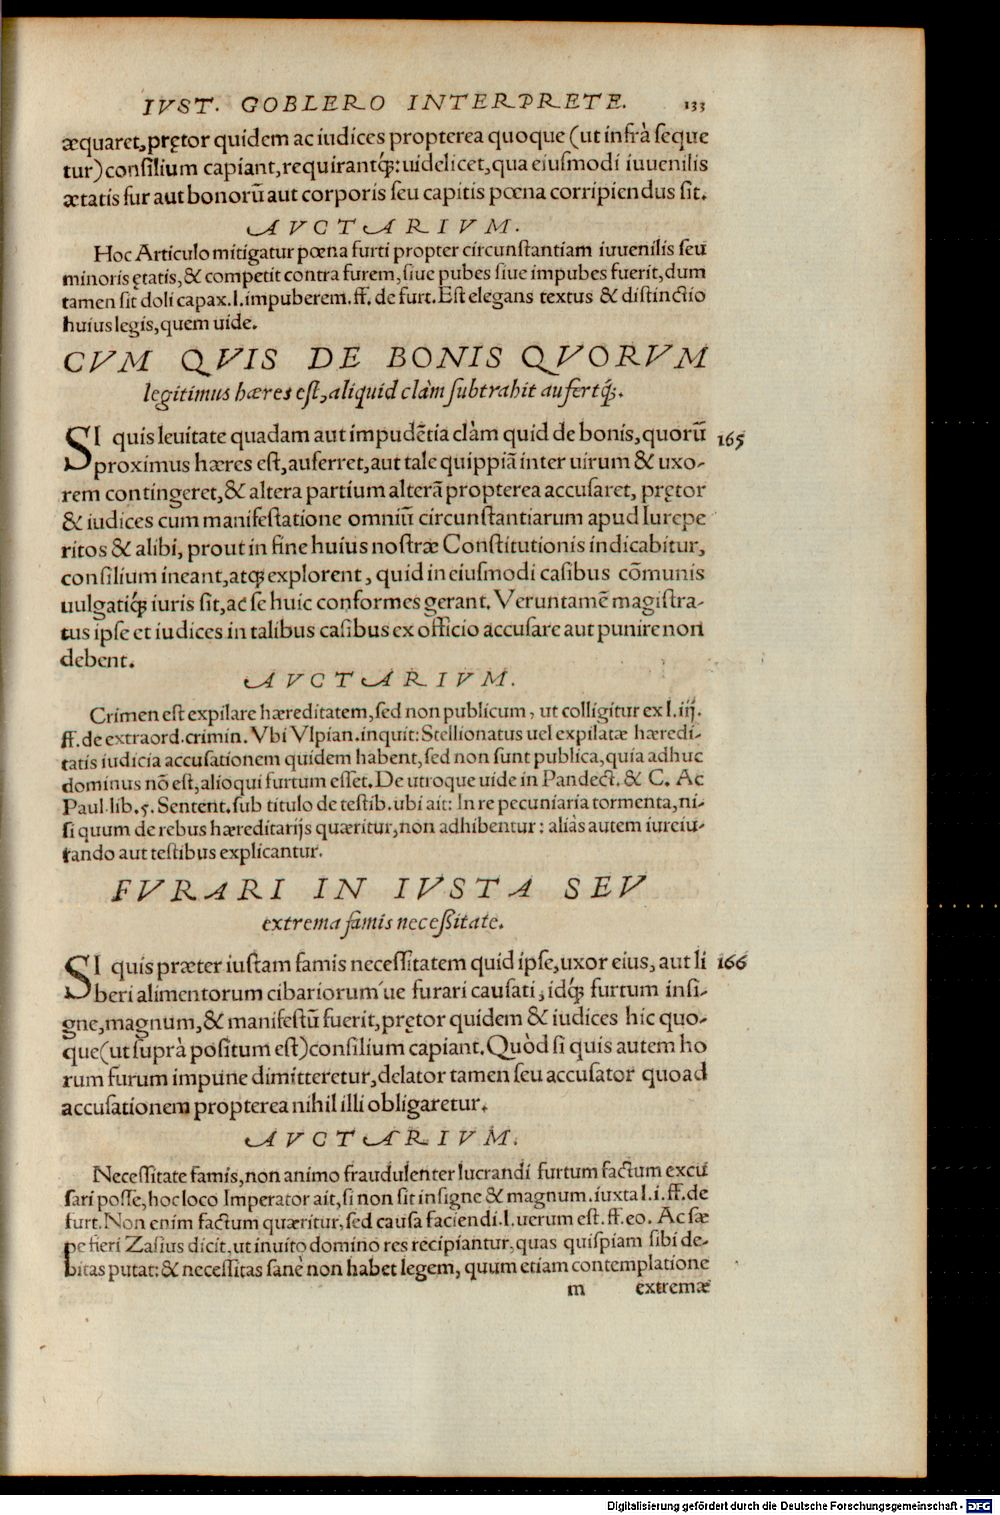 IVST. GOBLERO INTERPRETE. 133
æquaret, prętor quidem ac iudices propterea quoque (ut infrà seque
tur) consilium capiant, requirantq́; uidelicet, qua eiusmodi iuuenilis
ætatis fur aut bonorū aut corporis seu capitis pœna corripiendus sit.
AVCTARIVM.
Hoc Articulo mitigatur pœna furti propter circunstantiam iuuenilis seu
minoris ętatis, & competit contra furem, siue pubes siue impubes fuerit, dum
tamen sit doli capax. l. impuberem. ff. de furt. Est elegans textus & distinctio
huius legis, quem uide.
CVM QVIS DE BONIS QVORVM
legitimus hæres est, aliquid clàm subtrahit aufertq́;.
SI quis leuitate quadam aut impudētia clàm quid de bonis, quorū 165
proximus hæres est, auferret, aut tale quippiā inter uirum & uxo-
rem contingeret, & altera partium alterā propterea accusaret, prętor
& iudices cum manifestatione omniū circunstantiarum apud Iurepe
ritos & alibi, prout in fine huius nostræ Constitutionis indicabitur,
consilium ineant, atq; explorent, quid in eiusmodi casibus cōmunis
uulgatiq́; iuris sit, ac se huic conformes gerant. Veruntamē magistra-
tus ipse et iudices in talibus casibus ex officio accusare aut punire non
debent.
AVCTARIVM.
Crimen est expilare hæreditatem, sed non publicum, ut colligitur ex l. iij.
ff. de extraord. crimin. Vbi Vlpian. inquit: Stellionatus uel expilatæ hæredi-
tatis iudicia accusationem quidem habent, sed non sunt publica, quia adhuc
dominus nō est, alioqui furtum esset. De utroque uide in Pandect. & C. Ac
Paul. lib. 5. Sentent. sub titulo de testib. ubi ait: In re pecuniaria tormenta, ni-
si quum de rebus hæreditarijs quæritur, non adhibentur: aliàs autem iureiu-
rando aut testibus explicantur.
FVRARI IN IVSTA SEV
extrema famis necessitate.
SI quis præter iustam famis necessitatem quid ipse, uxor eius, aut li 166
beri alimentorum cibariorum'ue furari causati, idq́; furtum insi-
gne, magnum, & manifestū fuerit, prętor quidem & iudices hic quo-
que (ut suprà positum est) consilium capiant. Quòd si quis autem ho
rum furum impune dimitteretur, delator tamen seu accusator quoad
accusationem propterea nihil illi obligaretur.
AVCTARIVM.
Necessitate famis, non animo fraudulenter lucrandi furtum factum excu
sari posse, hoc loco Imperator ait, si non sit insigne & magnum. iuxta l. i. ff. de
furt. Non enim factum quæritur, sed causa faciendi. l. uerum est. ff. eo. Ac sæ
pe fieri Zasius dicit, ut inuito domino res recipiantur, quas quispiam sibi de-
bitas putat: & necessitas sanè non habet legem, quum etiam contemplatione
m extremæ
Digitalisierung gefördert durch die Deutsche Forschungsgemeinschaft - DFG